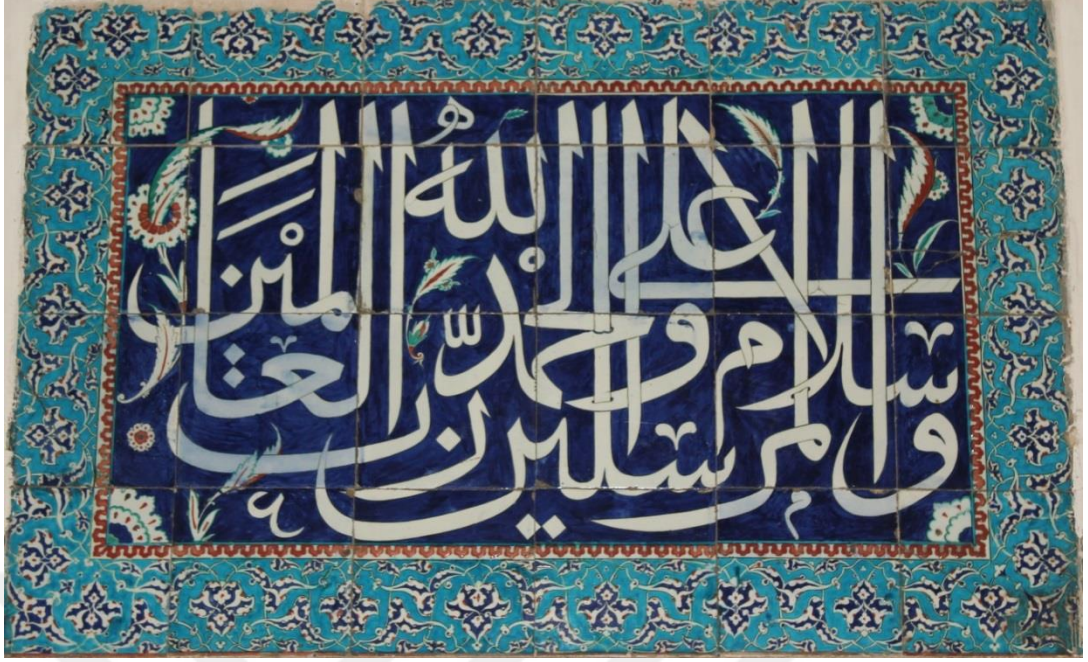 وسلام على المرسلين والحمد لله رب العالمين